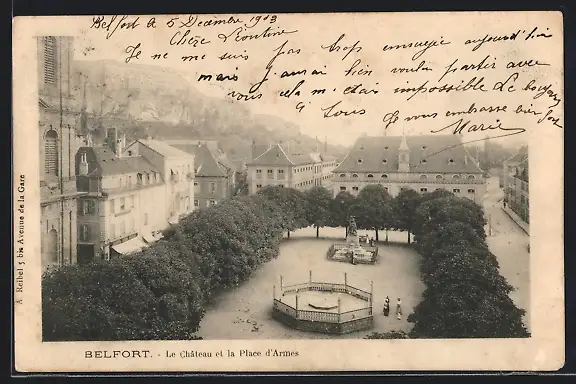 Belfort le 5 Décembre 1903
Chère
Je ne me suis pas trop ennuyée aujourd'hui
mais j'aurai bien voulu partir avec
vous cela m'était impossible Le
à tous Je vous embrasse bien fort
Marie
A. Reibel 5 bis Avenue de la Gare
BELFORT. - Le Château et la Place d'Armes